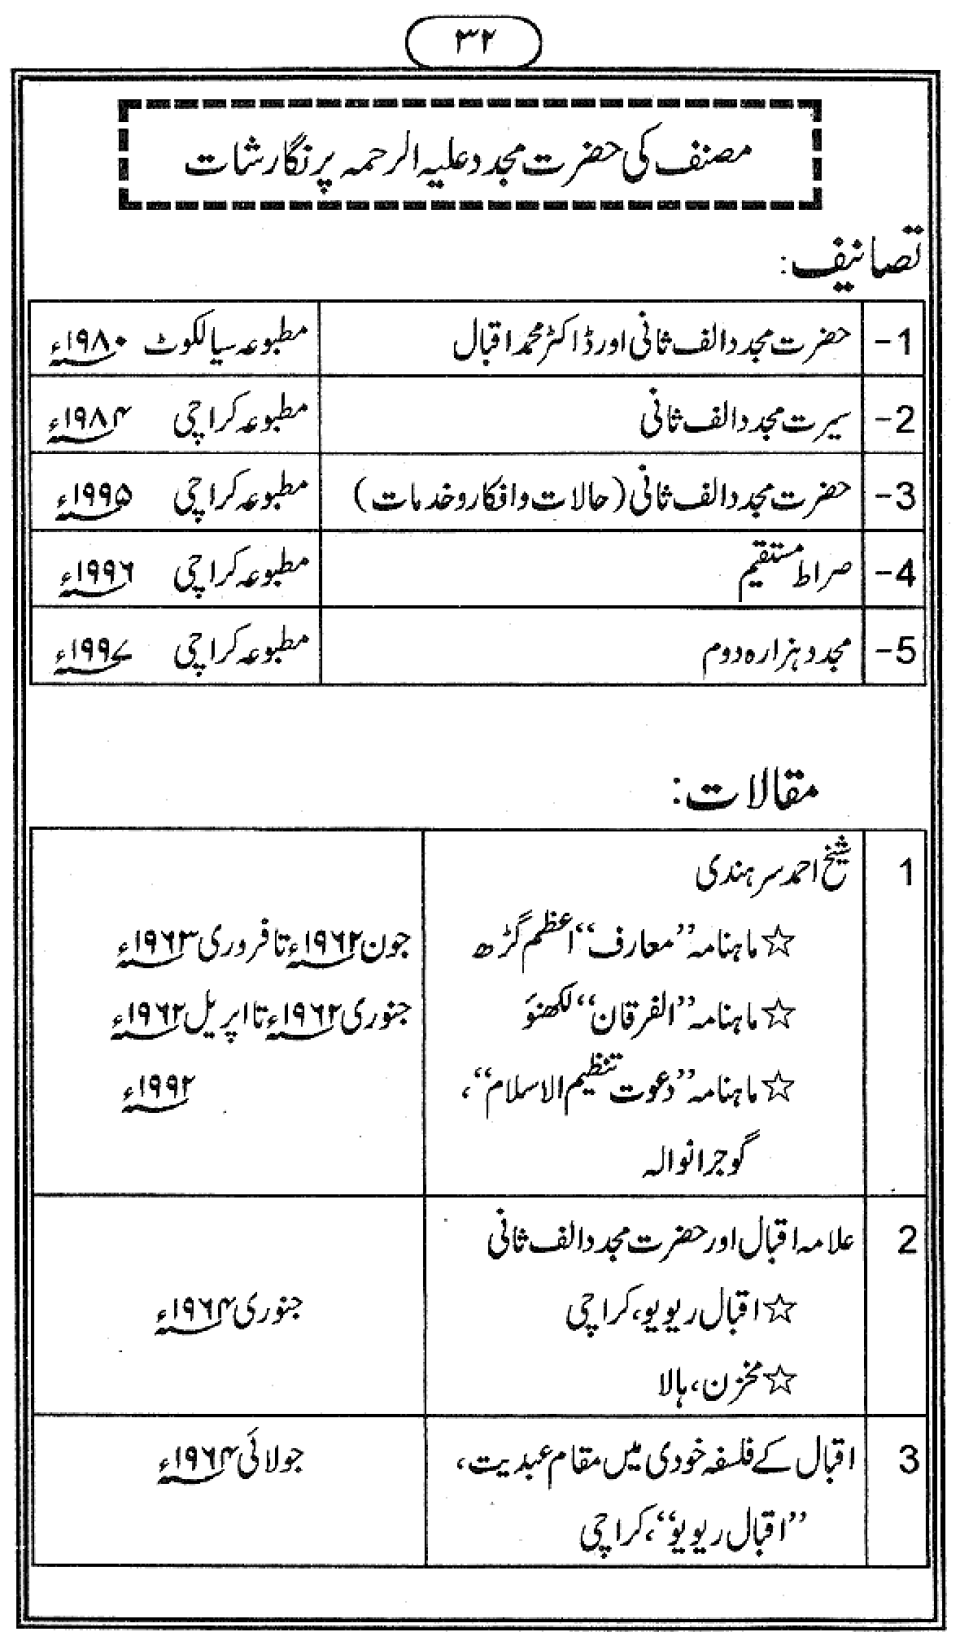 ۳۲
مصنف کی حضرت مجدد علیہ الرحمہ پر نگارشات
تصانیف:
1- حضرت مجدد الف ثانی اور ڈاکٹر محمد اقبال مطبوعہ سیالکوٹ ۱۹۸۰ء
2- سیرت مجدد الف ثانی مطبوعہ کراچی ۱۹۸۴ء
3- حضرت مجدد الف ثانی (حالات و افکار و خدمات) مطبوعہ کراچی ۱۹۹۵ء
4- صراط مستقیم مطبوعہ کراچی ۱۹۹۶ء
5- مجدد ہزارہ دوم مطبوعہ کراچی ۱۹۹۷ء
مقالات:
1 شیخ احمد سرہندی
☆ ماہنامہ ”معارف“ اعظم گڑھ جون ۱۹۶۲ء تا فروری ۱۹۶۳ء
☆ ماہنامہ ”الفرقان“ لکھنؤ جنوری ۱۹۶۲ء تا اپریل ۱۹۶۲ء
☆ ماہنامہ ”دعوت تنظیم الاسلام“، ۱۹۹۲ء
گوجرانوالہ
2 علامہ اقبال اور حضرت مجدد الف ثانی
☆ اقبال ریویو، کراچی جنوری ۱۹۶۴ء
☆ مخزن، ہالا
3 اقبال کے فلسفہ خودی میں مقام عبدیت، جولائی ۱۹۶۴ء
”اقبال ریویو“، کراچی